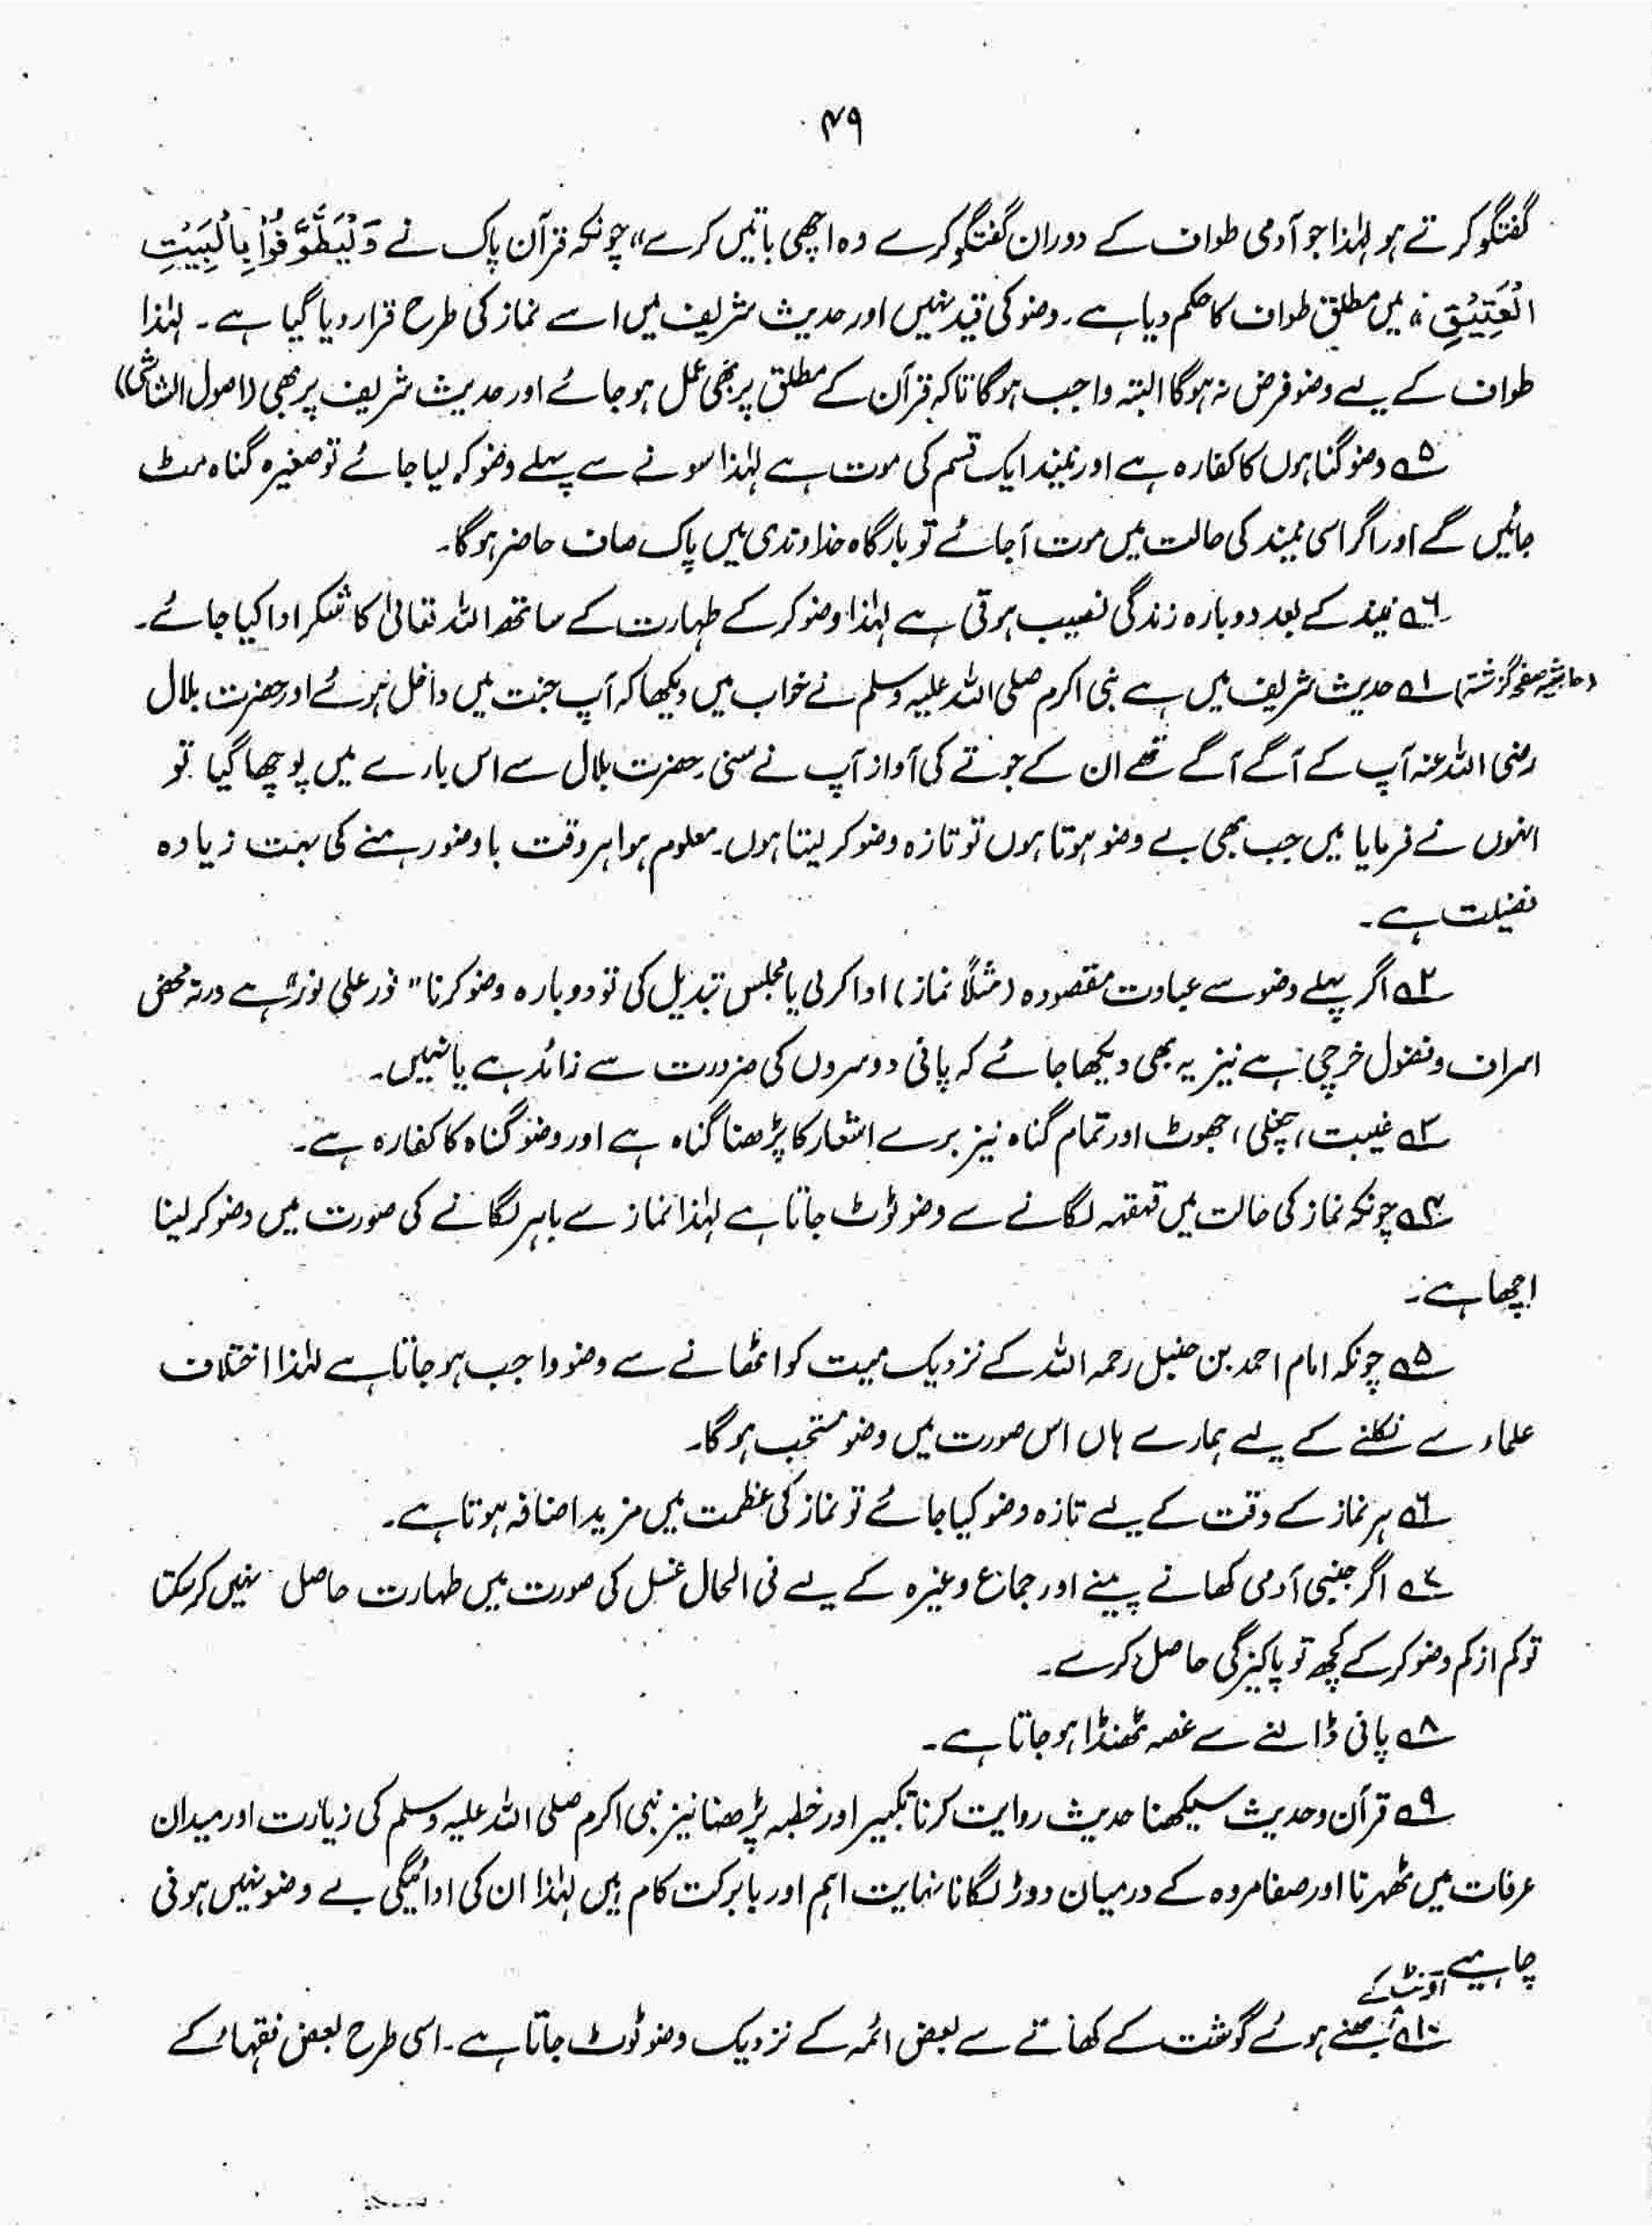 ۴۹
گفتگو کرتے ہو لہٰذا جو آدمی طواف کے دوران گفتگو کرے وہ اچھی باتیں کرے" چونکہ قرآن پاک نے وَلْيَطَّوَّفُوْا بِالْبَيْتِ
الْعَتِيْقِ " میں مطلق طواف کا حکم دیا ہے۔ وضو کی قید نہیں اور حدیث شریف میں اسے نماز کی طرح قرار دیا گیا ہے۔ لہٰذا
طواف کے لیے وضو فرض نہ ہوگا البتہ واجب ہوگا تاکہ قرآن کے مطلق پر بھی عمل ہو جائے اور حدیث شریف پر بھی (اصول الشاشی)
۵؎ وضو گناہوں کا کفارہ ہے اور نیند ایک قسم کی موت ہے لہٰذا سونے سے پہلے وضو کر لیا جائے تو صغیرہ گناہ مٹ
جائیں گے اور اگر اسی نیند کی حالت میں موت آجائے تو بارگاہ خداوندی میں پاک صاف حاضر ہوگا۔
۶؎ نیند کے بعد دوبارہ زندگی نصیب ہوتی ہے لہٰذا وضو کر کے طہارت کے ساتھ اللہ تعالیٰ کا شکر ادا کیا جائے۔
(حاشیہ صفحہ گزشتہ) ۱؎ حدیث شریف میں ہے نبی اکرم صلی اللہ علیہ وسلم نے خواب میں دیکھا کہ آپ جنت میں داخل ہوئے اور حضرت بلال
رضی اللہ عنہ آپ کے آگے آگے تھے ان کے جوتے کی آواز آپ نے سنی۔ حضرت بلال سے اس بارے میں پوچھا گیا تو
انہوں نے فرمایا میں جب بھی بے وضو ہوتا ہوں تو تازہ وضو کر لیتا ہوں۔ معلوم ہوا ہر وقت باوضو رہنے کی بہت زیادہ
فضیلت ہے۔
۲؎ اگر پہلے وضو سے عبادت مقصودہ (مثلاً نماز) ادا کر لی یا مجلس تبدیل کی تو دوبارہ وضو کرنا "نور علی نور" ہے ورنہ محض
اسراف و فضول خرچی ہے نیز یہ بھی دیکھا جائے کہ پانی دوسروں کی ضرورت سے زائد ہے یا نہیں۔
۳؎ غیبت، چغلی، جھوٹ اور تمام گناہ نیز برے اشعار کا پڑھنا گناہ ہے اور وضو گناہ کا کفارہ ہے۔
۴؎ چونکہ نماز کی حالت میں قہقہہ لگانے سے وضو ٹوٹ جاتا ہے لہٰذا نماز سے باہر لگانے کی صورت میں وضو کر لینا
اچھا ہے۔
۵؎ چونکہ امام احمد بن حنبل رحمہ اللہ کے نزدیک میت کو اٹھانے سے وضو واجب ہو جاتا ہے لہٰذا اختلاف
علماء سے نکلنے کے لیے ہمارے ہاں اس صورت میں وضو مستحب ہوگا۔
۶؎ ہر نماز کے وقت کے لیے تازہ وضو کیا جائے تو نماز کی عظمت میں مزید اضافہ ہوتا ہے۔
۷؎ اگر جنبی آدمی کھانے پینے اور جماع وغیرہ کے لیے فی الحال غسل کی صورت میں طہارت حاصل نہیں کر سکتا
تو کم از کم وضو کر کے کچھ تو پاکیزگی حاصل کرے۔
۸؎ پانی ڈالنے سے غصہ ٹھنڈا ہو جاتا ہے۔
۹؎ قرآن وحدیث سیکھنا حدیث روایت کرنا تکبیر اور خطبہ پڑھنا نیز نبی اکرم صلی اللہ علیہ وسلم کی زیارت اور میدان
عرفات میں ٹھہرنا اور صفا مروہ کے درمیان دوڑ لگانا نہایت اہم اور بابرکت کام ہیں لہٰذا ان کی ادائیگی بے وضو نہیں ہونی
چاہیے
اونٹ کے
۱۰؎ بھنے ہوئے گوشت کے کھانے سے بعض ائمہ کے نزدیک وضو ٹوٹ جاتا ہے۔ اسی طرح بعض فقہاء کے